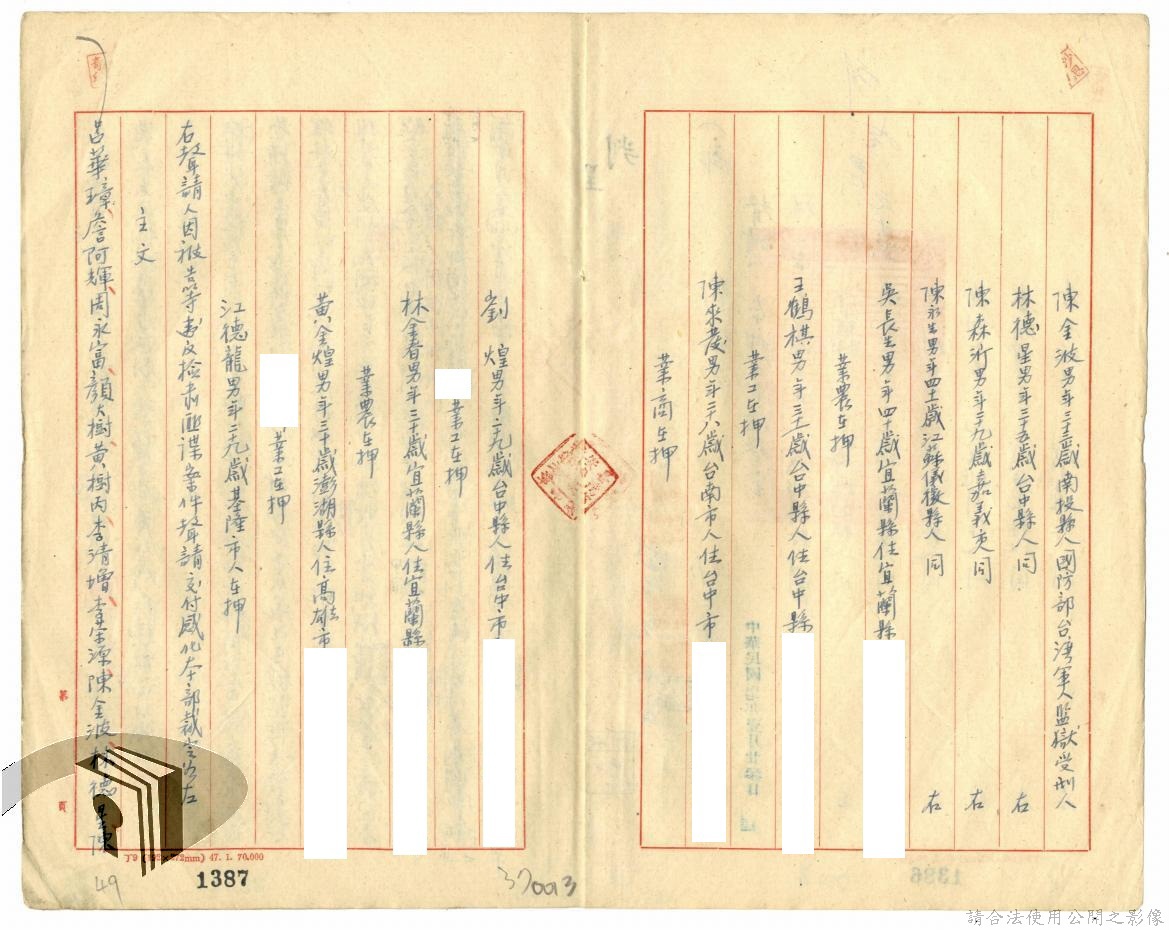 陳金波男年三十三歲南投縣人國防部台灣軍人監獄受刑人
林德星男年三十五歲台中縣人同 右
陳森淅男年二十九歲嘉義市人同 右
陳永生男年四十歲江蘇儀徵縣人同 右
吳長生男年四十歲宜蘭縣住宜蘭縣
業農在押
王鶴棋男年三十歲台中縣人住台中縣
業工在押
陳來發男年二十八歲台南市人住台中市
業商在押
劉 煌男年二十九歲台中縣人住台中市
業工在押
林金春男年三十歲宜蘭縣人住宜蘭縣
業農在押
黃金煌男年三十歲澎湖縣人住高雄市
業工在押
江德龍男年二十九歲基隆市人在押
右聲請人因被告等書反檢肅匪諜案件聲請交付感化本部裁定如左
主文
呂華璋、詹阿輝、周永富、顏大樹、黃樹丙、李清增、李宗源、陳金波、林德星、陳
第 頁
47. 1. 70,000
1387
49
37003
請合法使用公開之影像